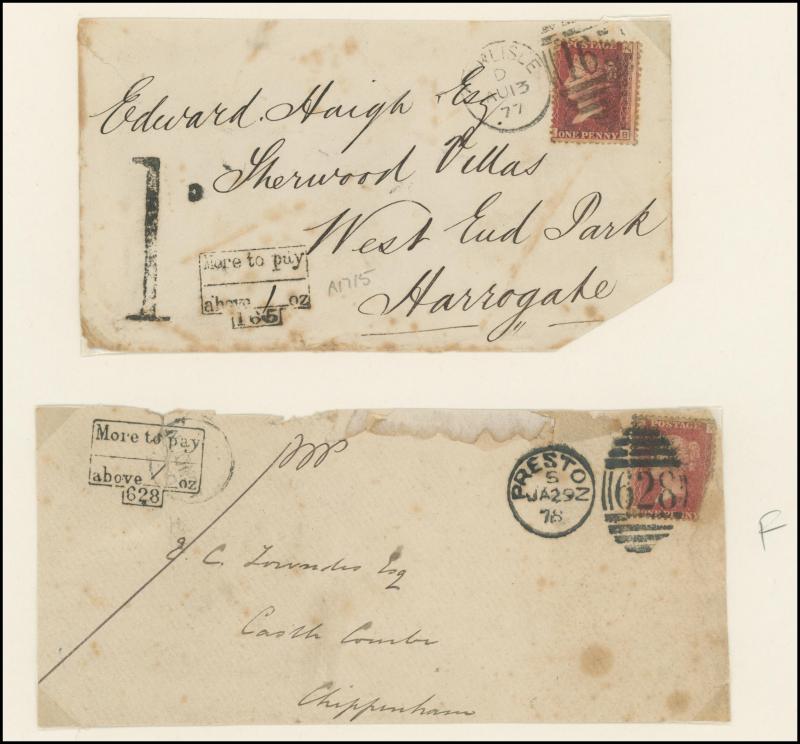 RLISLE
D
AU 13
77
16
POSTAGE
ONE PENNY
B
Edward Haigh Esq.
Sherwood Villas
West End Park
Harrogate
1.
More to pay
above 1 oz
165
A1715
More to pay
above oz
628
PRESTON
S
JA 29
78
628
POSTAGE
ONE PENNY
E. C. Lowndes Esq
Castle Combe
Chippenham
F